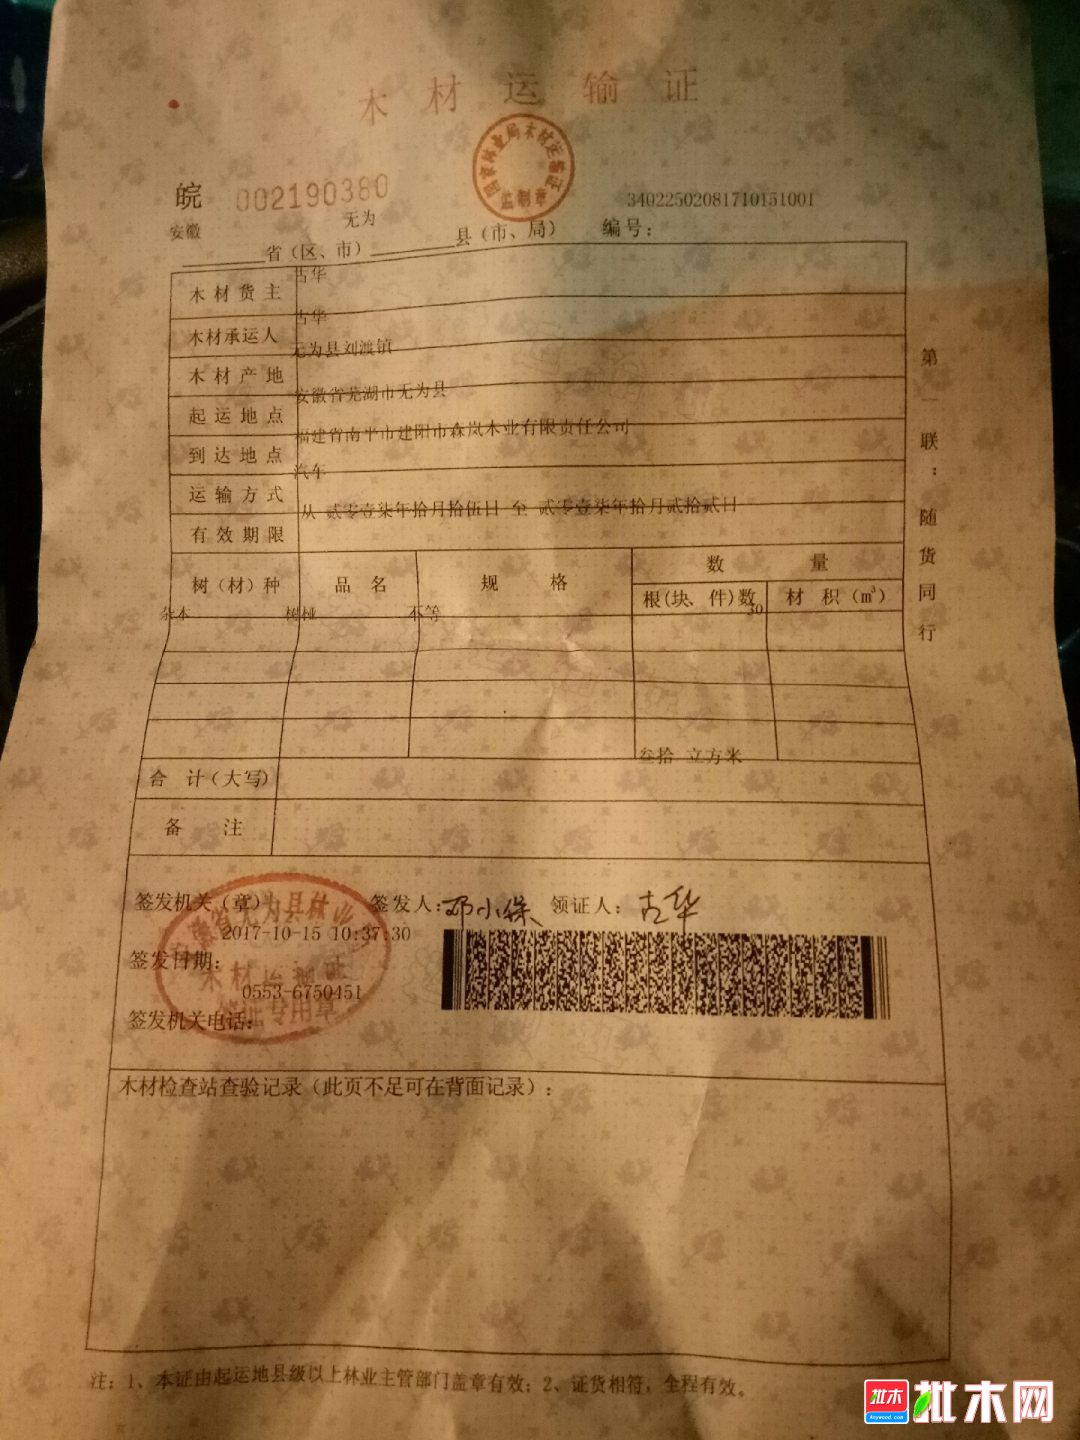 木材运输证
国家林业局木材运输证
监制章
皖 002190380
34022502081710151001
安徽 省(区、市) 无为 县(市、局) 编号:
木材货主 古华
木材承运人 古华
木材产地 无为县刘渡镇
起运地点 安徽省芜湖市无为县
到达地点 福建省南平市建阳市森岚木业有限责任公司
运输方式 汽车
有效期限 从 贰零壹柒年拾月拾伍日 至 贰零壹柒年拾月贰拾贰日
树(材)种 品名 规格 数量
根(块、件)数 材积(m³)
杂木 树桠 不等 30
合计(大写) 叁拾 立方米
备注
第一联:随货同行
签发机关(章) 签发人:邓小保 领证人:古华
2017-10-15 10:37:30
签发日期:
0553-6750451
签发机关电话:
安徽省无为县林业
木材检查站查验记录(此页不足可在背面记录):
注:1、本证由起运地县级以上林业主管部门盖章有效;2、证货相符,全程有效。
批木
Anywood.com
批木网